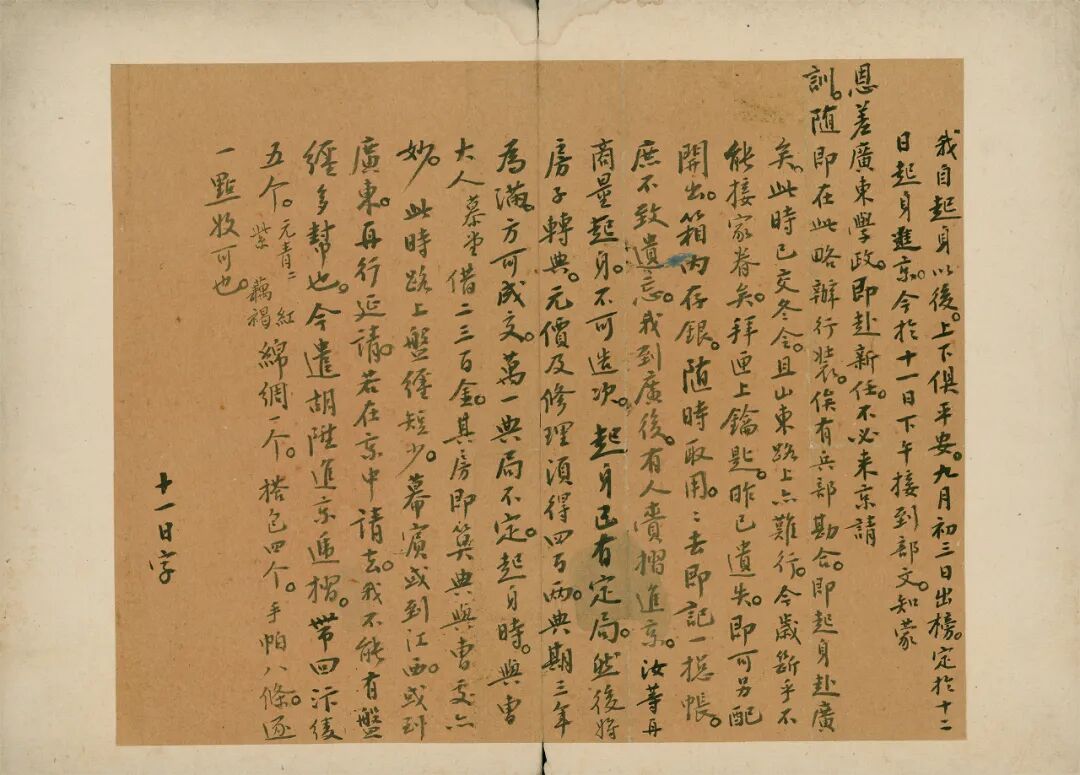 我自起身以後。上下俱平安。九月初三日出榜。定於十二
日起身進京。今於十一日下午接到部文。知蒙
恩差廣東學政。即赴新任。不必来京請
訓。随即在此略辦行裝。俟有兵部勘合。即起身赴廣
矣。此時已交冬令。且山東路上亦難行。今歲斷乎不
能接家眷矣。拜匣上鑰匙。昨已遺失。即可另配
開出。箱內存銀。随時取用。〻去即記一摠帳。
庶不致遺忘。我到廣後。有人賫摺進京。汝等再
商量起身。不可造次。起身已有定局。然後將
房子轉典。元價及修理須得四百兩。典期三年
為滿。方可成交。萬一典局不定。起身時。與曹
大人慕堂借二三百金。其房即算典與曹處亦
妙。此時路上盤纏短少。幕賓或到江西。或到
廣東。再行延請。若在京中請去。我不能有盤
纏多幫也。今遣胡陞進京遞摺。帶回汴綾
五个。元青二 紅 紫 藕褐 綿綢一个。搭包四个。手帕八條。逐
一點收可也。
十一日字